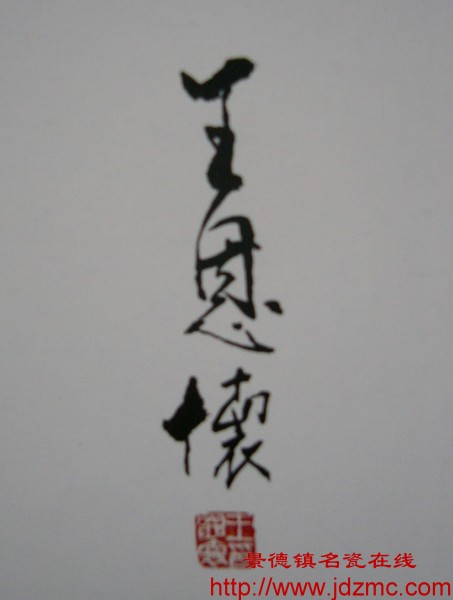 王恩懷
景德镇名瓷在线
http://www.jdzmc.com